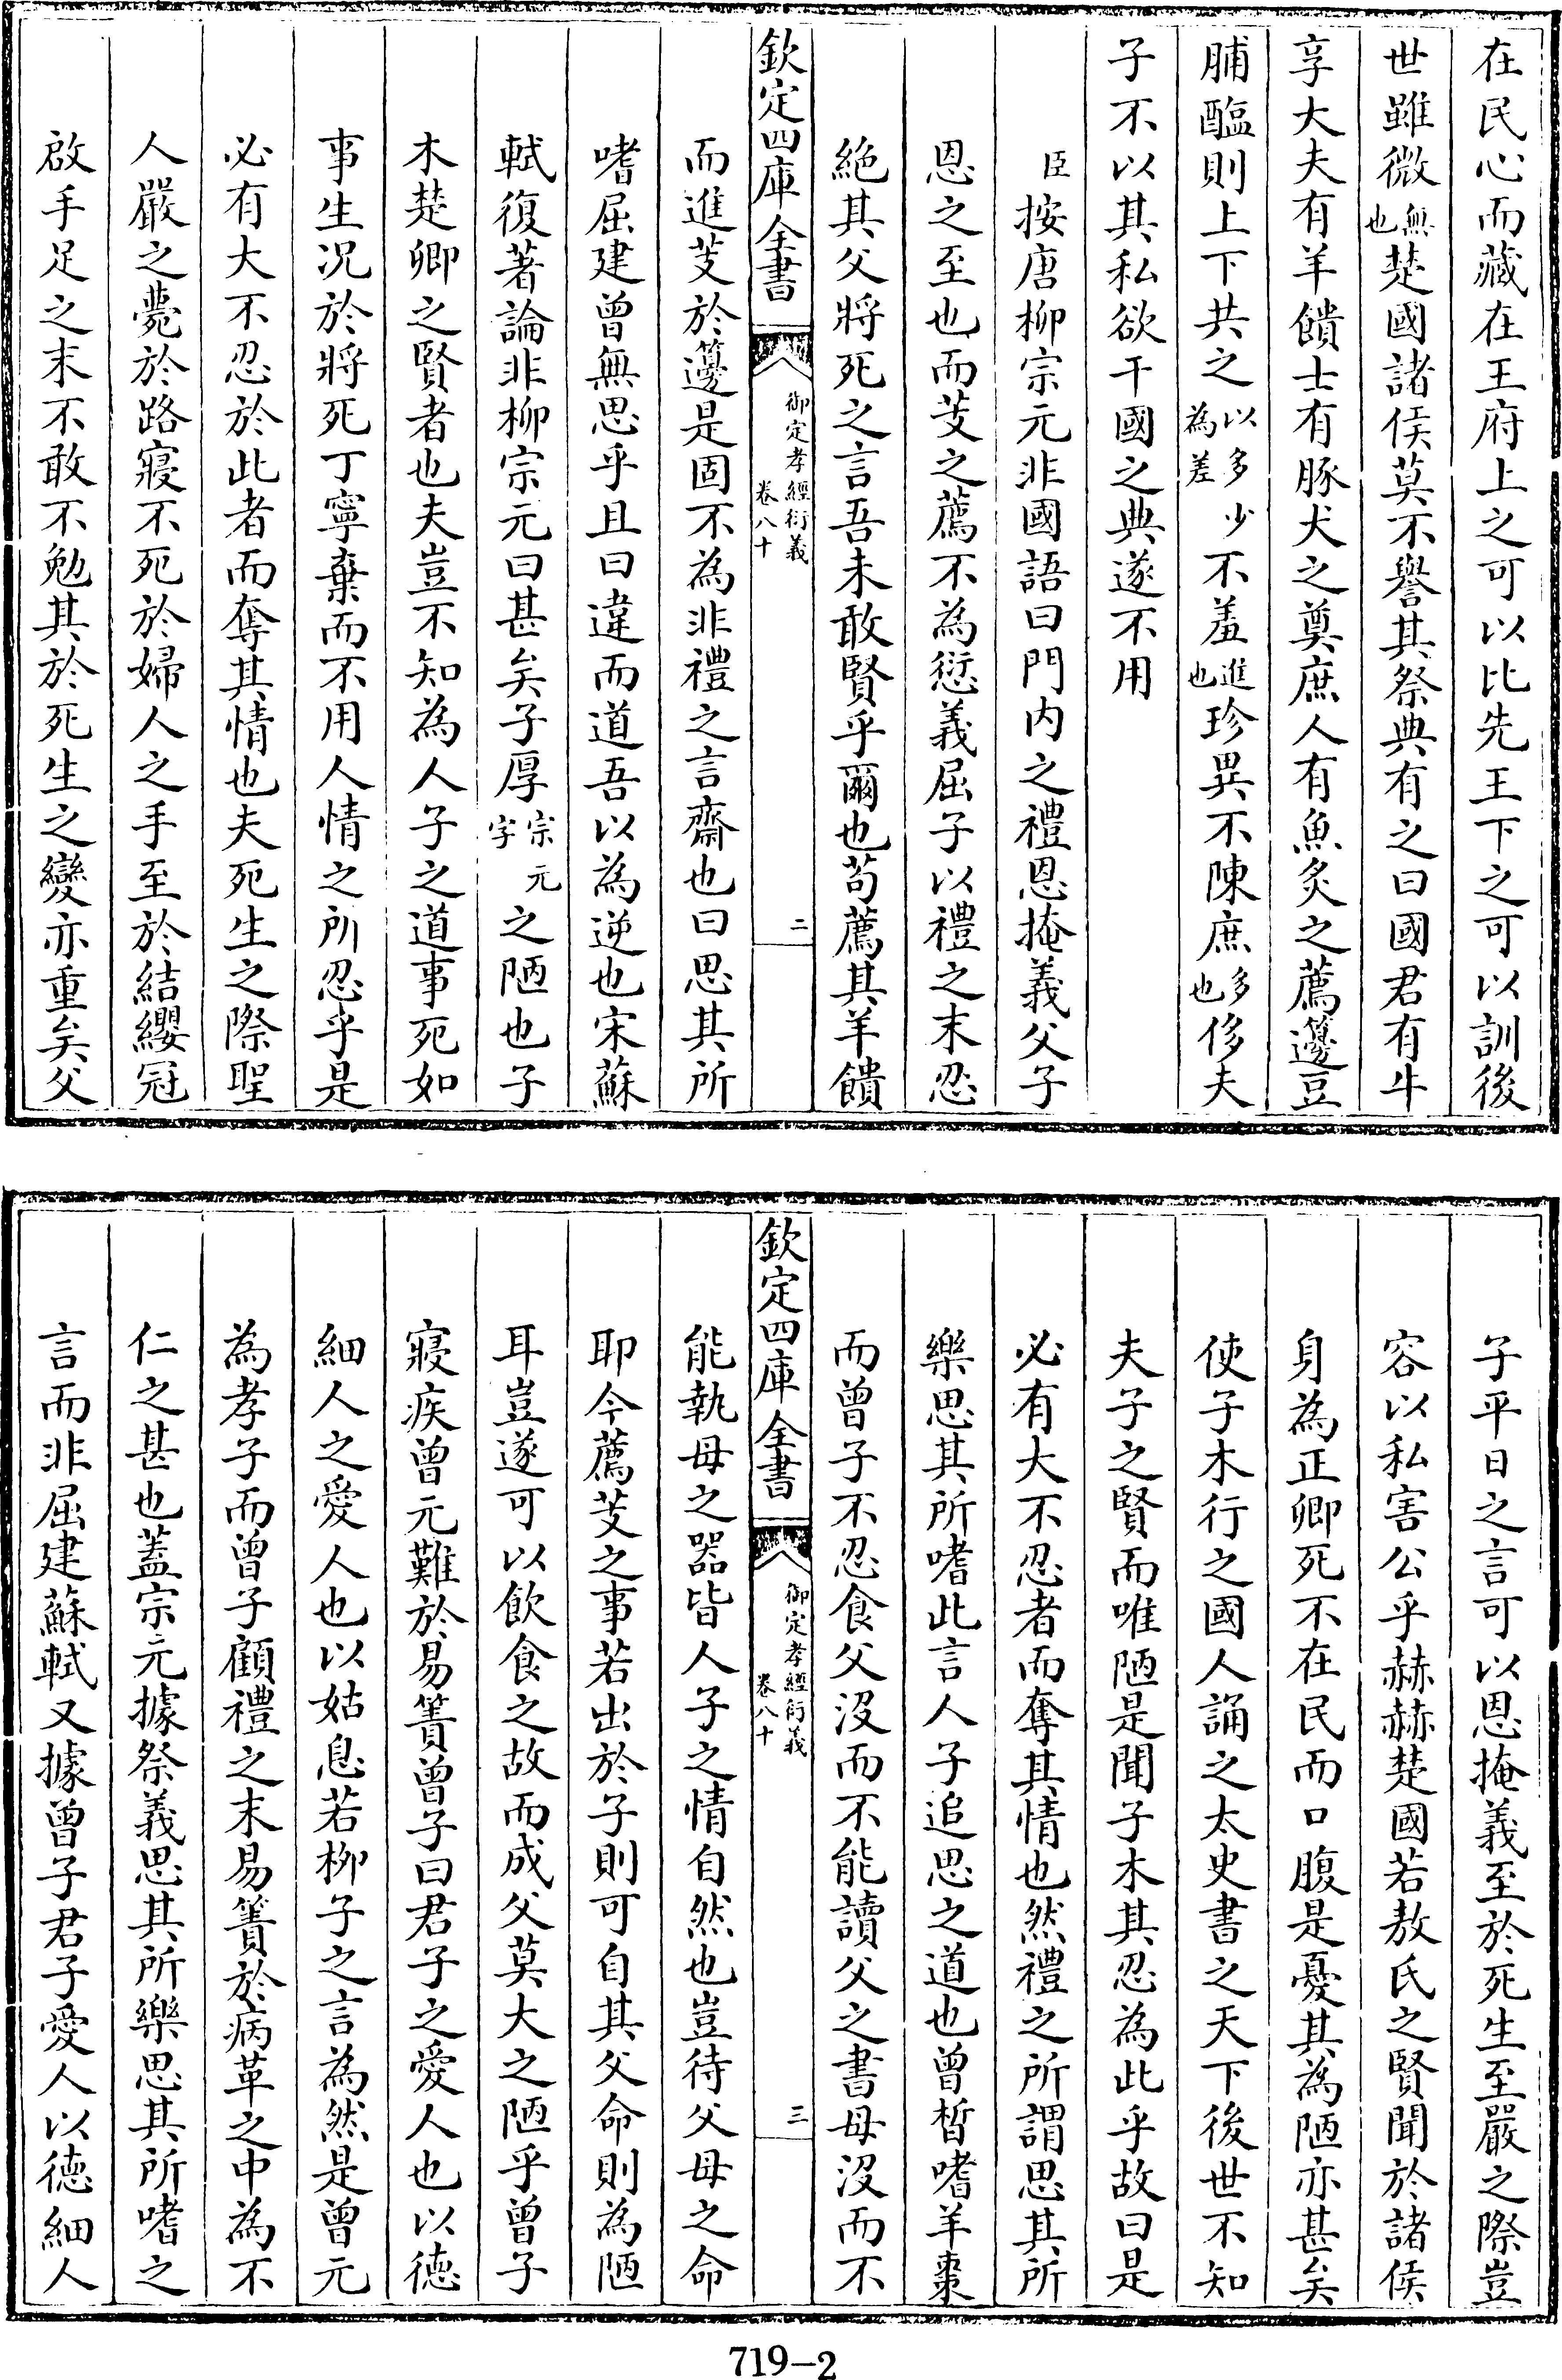 在民心而藏在王府上之可以比先王下之可以訓後
世雖微無也楚國諸侯莫不譽其祭典有之曰國君有牛
享大夫有羊饋士有豚犬之奠庶人有魚炙之薦籩豆
脯醢則上下共之以多少為差不羞進也珍異不陳庶多也侈夫
子不以其私欲干國之典遂不用
臣按唐柳宗元非國語曰門内之禮恩掩義父子
恩之至也而芰之薦不為愆義屈子以禮之末忍
絶其父將死之言吾未敢賢乎爾也苟薦其羊饋
欽定四庫全書
御定孝經衍義
卷八十
二
而進芰於籩是固不為非禮之言齋也曰思其所
嗜屈建曾無思乎且曰違而道吾以為逆也宋蘇
軾復著論非柳宗元曰甚矣子厚宗元字之陋也子
木楚卿之賢者也夫豈不知為人子之道事死如
事生況於將死丁寧棄而不用人情之所忍乎是
必有大不忍於此者而奪其情也夫死生之際聖
人嚴之薨於路寢不死於婦人之手至於結纓冠
啟手足之末不敢不勉其於死生之變亦重矣父
子平日之言可以恩掩義至於死生至嚴之際豈
容以私害公乎赫赫楚國若敖氏之賢聞於諸侯
身為正卿死不在民而口腹是憂其為陋亦甚矣
使子木行之國人誦之太史書之天下後世不知
夫子之賢而唯陋是聞子木其忍為此乎故曰是
必有大不忍者而奪其情也然禮之所謂思其所
樂思其所嗜此言人子追思之道也曾皙嗜羊棗
而曾子不忍食父沒而不能讀父之書母沒而不
欽定四庫全書
御定孝經衍義
卷八十
三
能執母之器皆人子之情自然也豈待父母之命
耶今薦芰之事若出於子則可自其父命則為陋
耳豈遂可以飲食之故而成父莫大之陋乎曾子
寢疾曾元難於易簀曾子曰君子之愛人也以德
細人之愛人也以姑息若柳子之言為然是曾元
為孝子而曾子顧禮之末易簀於病革之中為不
仁之甚也蓋宗元據祭義思其所樂思其所嗜之
言而非屈建蘇軾又據曾子君子愛人以德細人
719-2